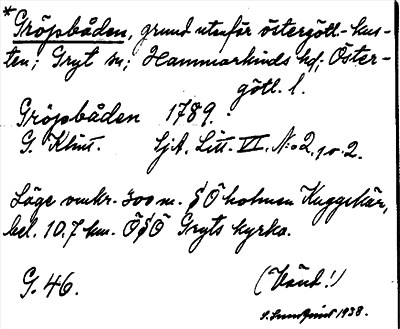 *Gröpbåden, grund utanför östergötl.-kus-
ten; Gryt sn; Hammarkinds hd; Öster-
götl. l.
Gröpbåden 1789.
G. Klint. Sjk. Litt. VI. N:o 2, 1. 2.
Läge omkr. 300 m. SÖ holmen Kuggskär,
bel. 10.7 km. ÖSÖ Gryts kyrka.
G. 46. (Vänd!)
S. Lundquist 1938.